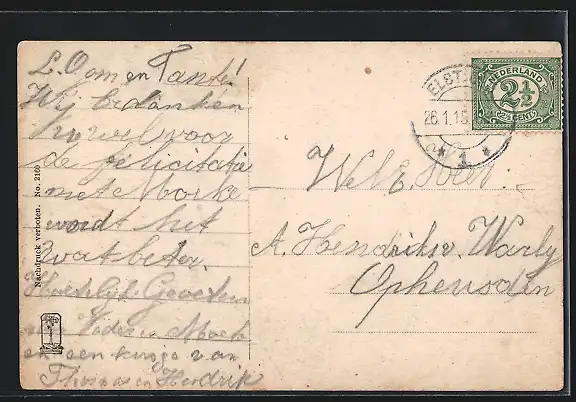 L. Oom en Tante!
Wij bedanken
U wel voor
de felicitatie
met Moeke
wordt het
wat beter.
Hartelijk Groeten
van Vader en Moeke
en een kusje van
Thomas en Hendrik
Nachdruck verboten. No. 2160
ELST
26.1.18
1
NEDERLAND
2½
CENT
Wel E. Heer
A. Hendriks v. Warly
Opheusden